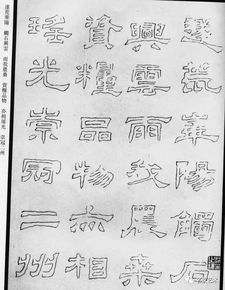 遂荒華陽觸石
興雲雨我農桑
資糧品物亦相
瑤光崇冠二州
遂荒華陽 觸石興雲 雨我農桑 資糧品物 亦相瑤光 崇冠二州